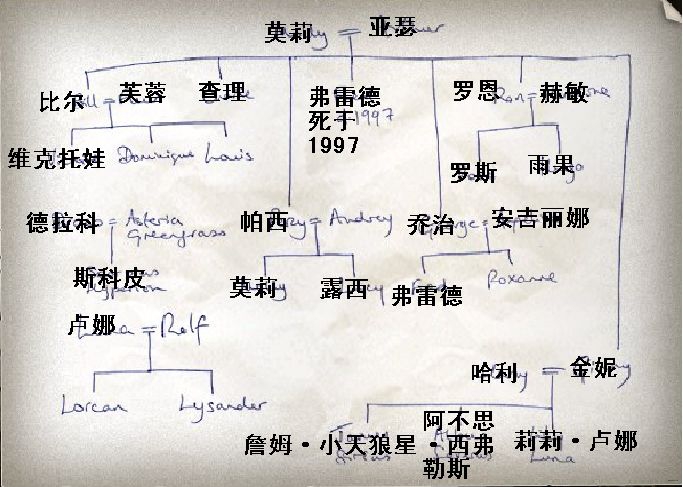 莫莉 = 亚瑟
比尔 芙蓉 查理 弗雷德 罗恩 赫敏
死于 1997
1997
维克托娃 Dominique Louis 罗斯 雨果
德拉科 = Asteria 帕西 = Audrey 乔治 安吉丽娜
Greengrass
斯科皮 莫莉 露西 弗雷德 Roxanne
Hyperion
卢娜 = Rolf
哈利 = 金妮
Lorcan Lysander
阿不思
詹姆·小天狼星·西弗 莉莉·卢娜
勒斯